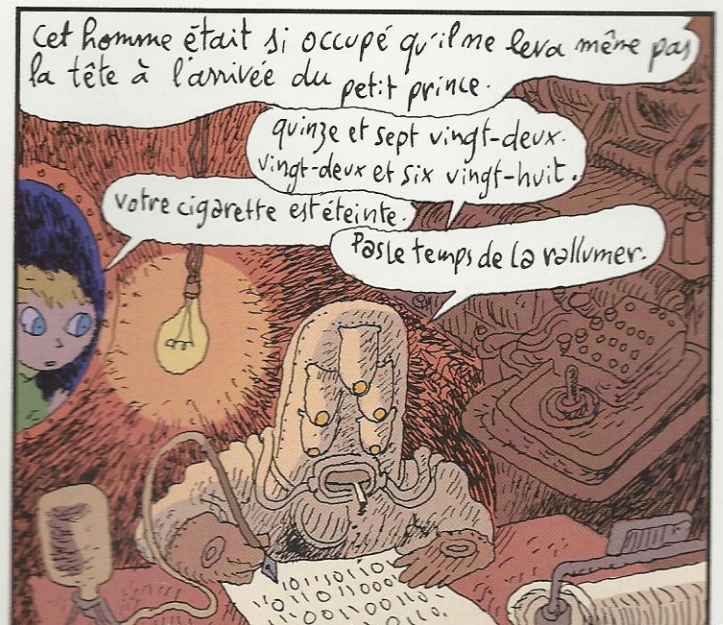 Cet homme était si occupé qu'il ne leva même pas
la tête à l'arrivée du petit prince.
quinze et sept vingt-deux.
vingt-deux et six vingt-huit.
votre cigarette est éteinte.
Pas le temps de la rallumer.